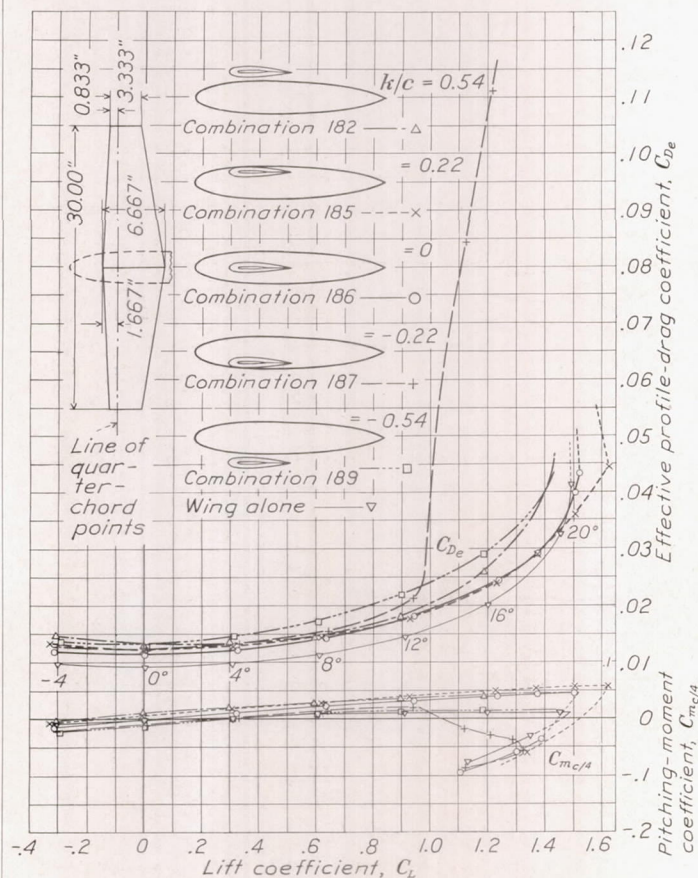 0.833"
3.333"
30.00"
6.667"
1.667"
Line of
quar-
ter-
chord
points
k/c = 0.54
Combination 182
= 0.22
Combination 185
= 0
Combination 186
= -0.22
Combination 187
= -0.54
Combination 189
Wing alone
C_De
-4
0°
4°
8°
12°
16°
20°
C_mc/4
.12
.11
.10
.09
.08
.07
.06
.05
.04
.03
.02
.01
0
.1
0
-.1
-.2
Effective profile-drag coefficient, C_De
Pitching-moment
coefficient, C_mc/4
-.4 -.2 0 .2 .4 .6 .8 1.0 1.2 1.4 1.6
Lift coefficient, C_L